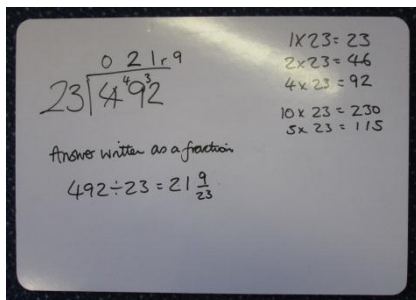 0 2 1 r 9
23 4 ⁴9 ³2
Answer written as a fraction
492÷23 = 21 9/23
1 x 23 = 23
2 x 23 = 46
4 x 23 = 92
10 x 23 = 230
5 x 23 = 115